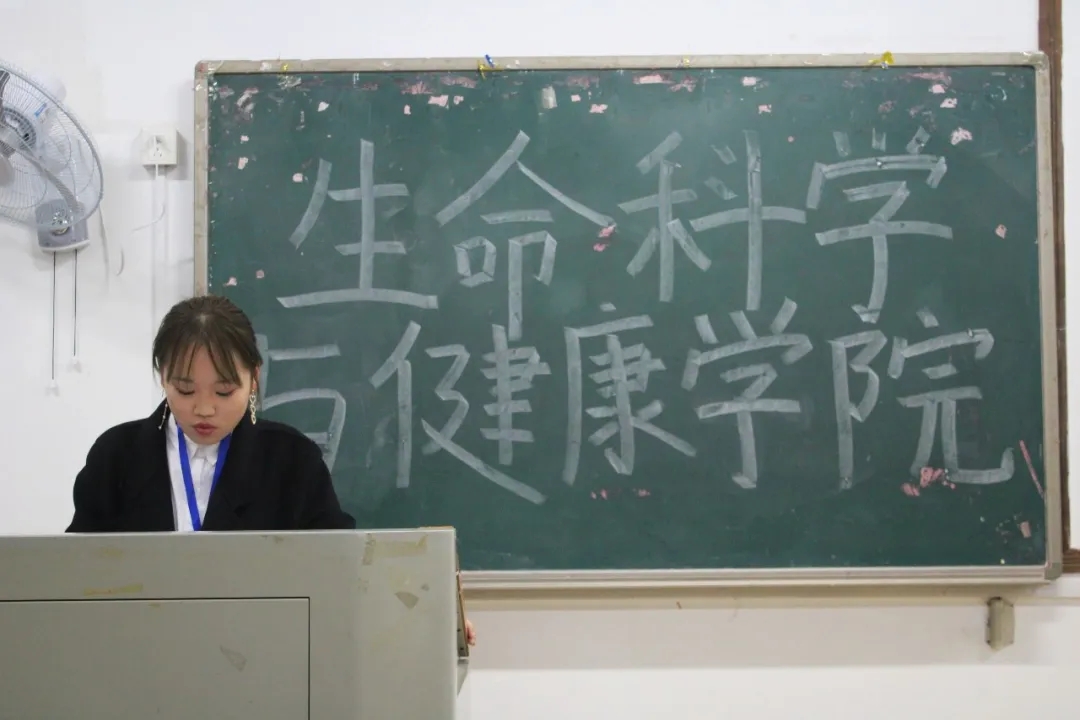 生命科学
与健康学院